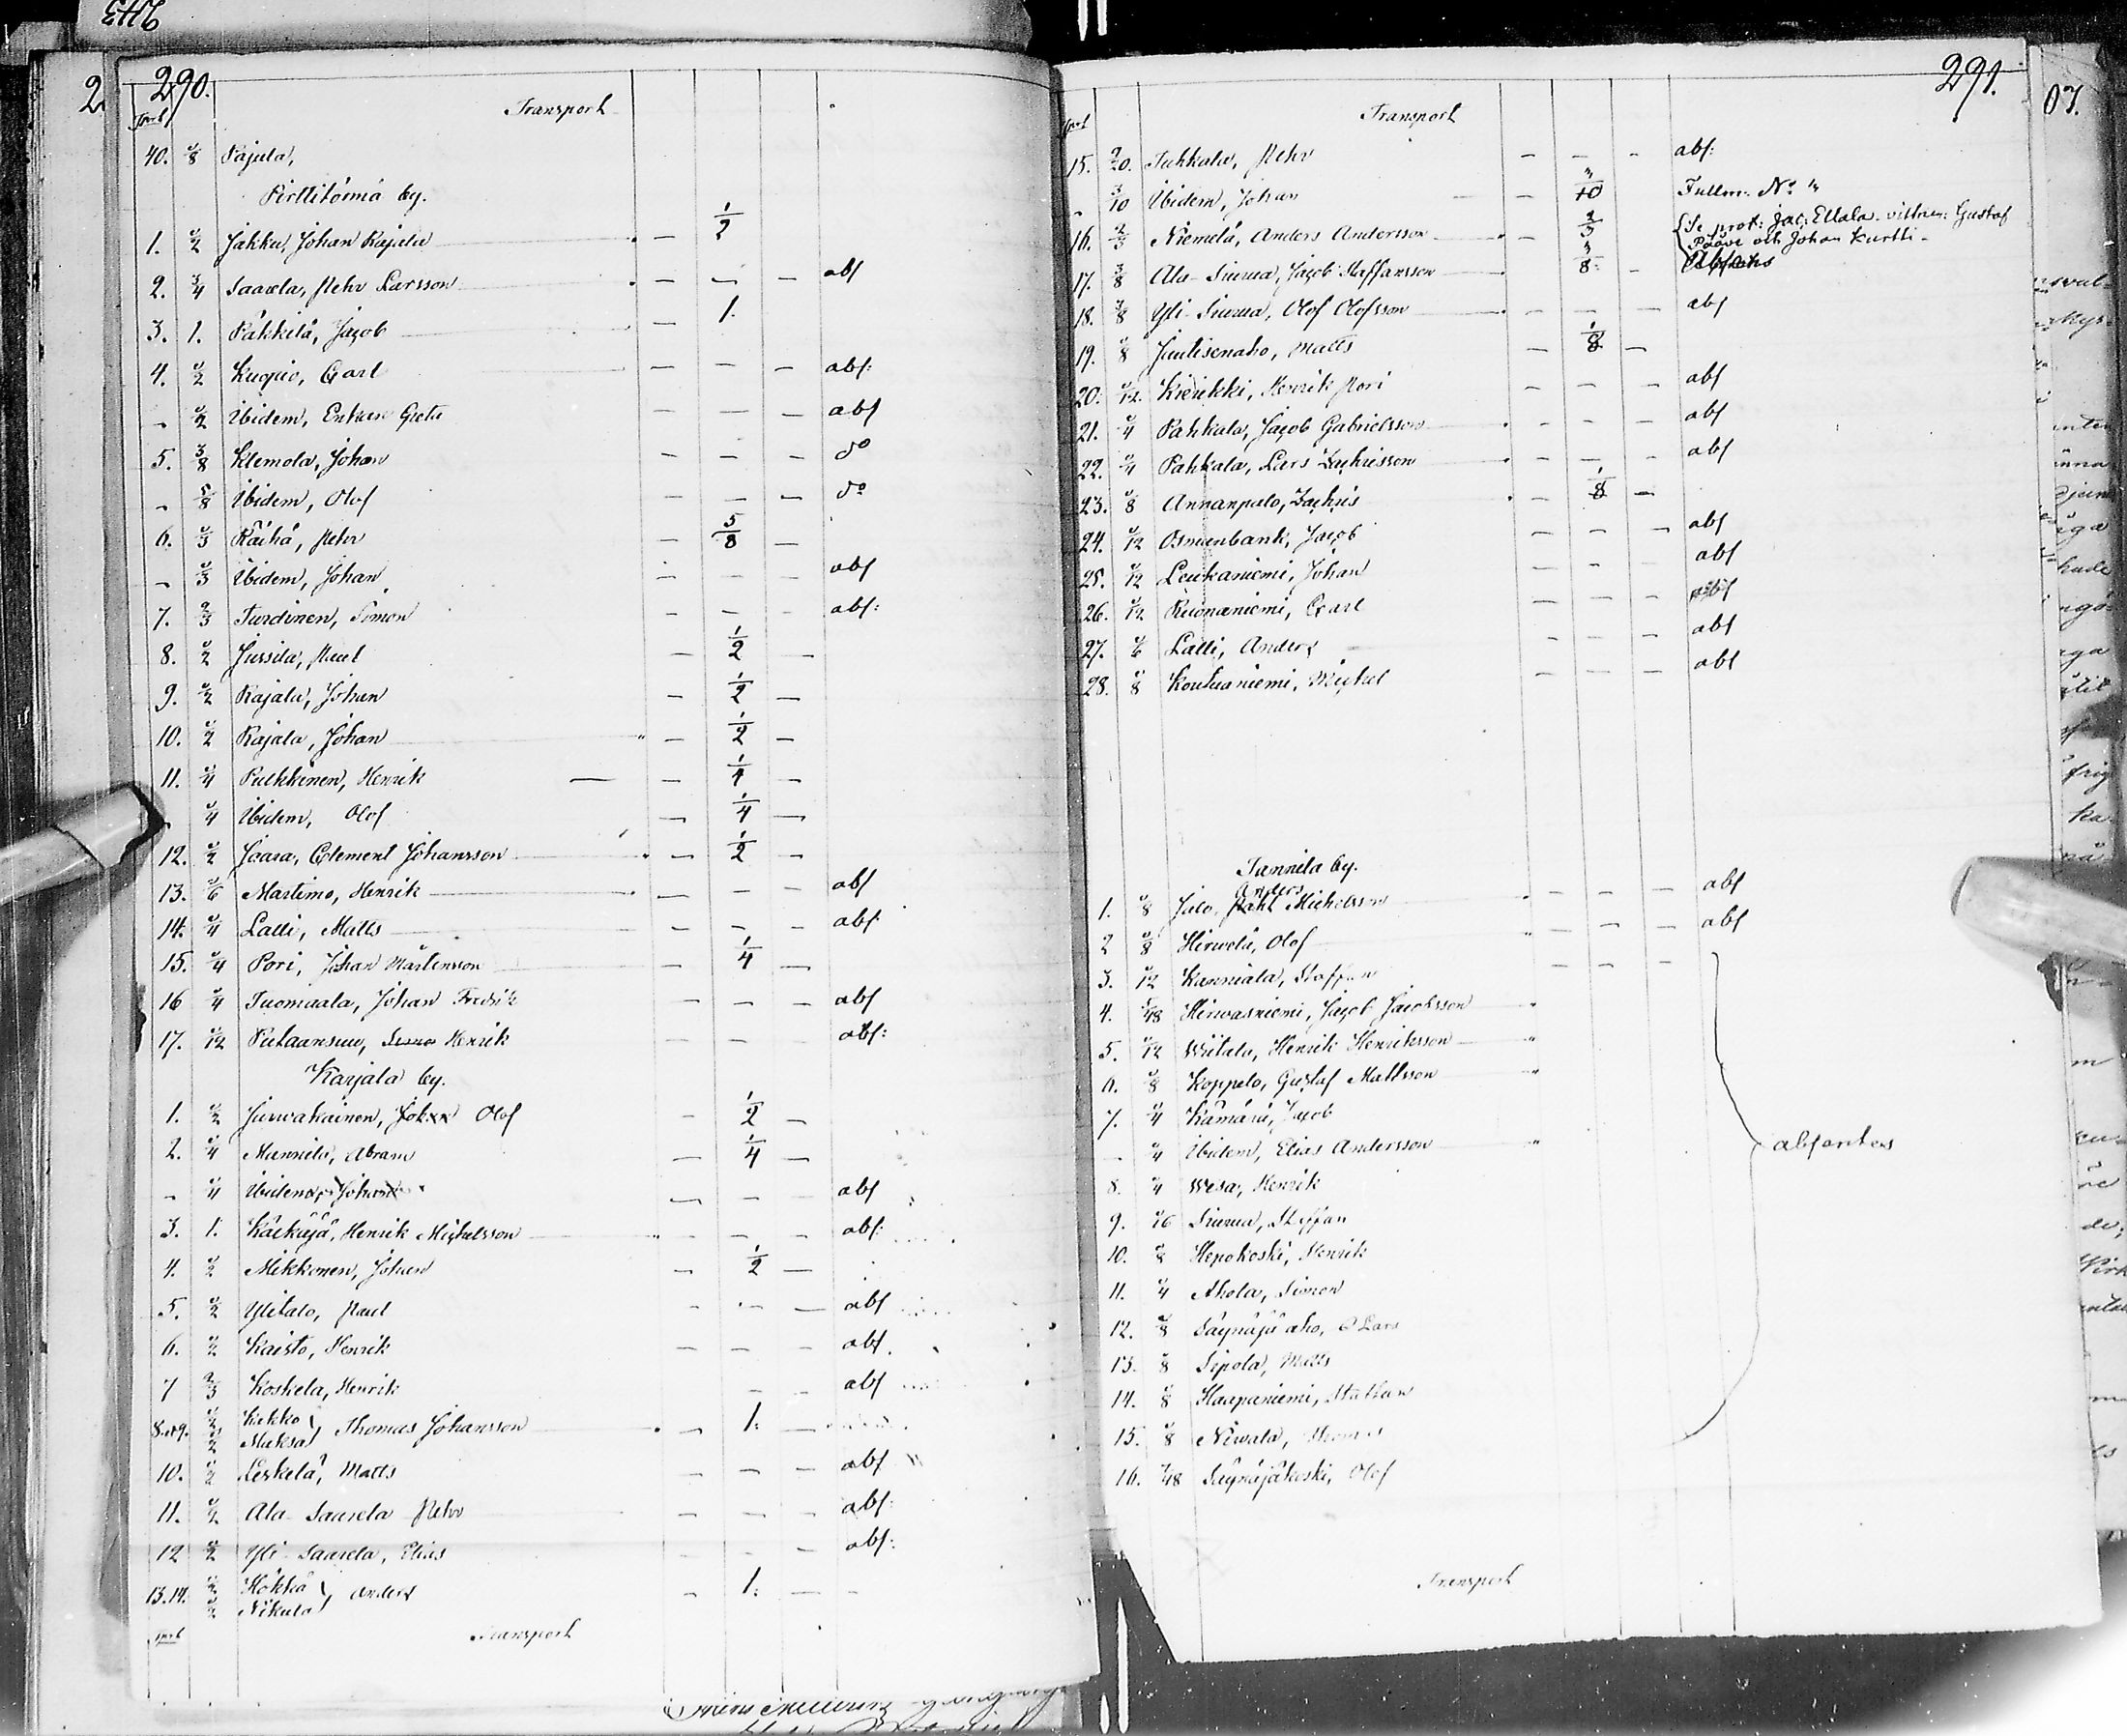 290.
Transport
40. 1/8 Rajala,
Pirttitörmä by.
1. 1/2 Jakku, Johan Rajala — 1/2
2. 3/4 Saarela, Pehr Larsson — — — abs
3. 1. Päkkilä, Jacob — 1.
4. 1/2 Kuoppio, Carl — — — abs:
- 1/2 Ibidem, Enkan Greta — — — abs
5. 3/8 Klemola, Johan — — — do
- 5/8 Ibidem, Olof — — — do
6. 1/3 Räihä, Pehr — 5/8 —
- 1/3 Ibidem, Johan — — — abs
7. 2/3 Turdinen, Simon — — — abs:
8. 1/2 Jussila, Paul — 1/2 —
9. 1/2 Rajala, Johan — 1/2 —
10. 1/2 Rajala, Johan — 1/2 —
11. 1/4 Pulkkinen, Henrik — 1/4 —
1/4 Ibidem, Olof — 1/4 —
12. 1/2 Jaara, Clement Johansson — 1/2 —
13. 1/6 Martimo, Henrik — — — abs
14. 1/4 Lalli, Matts — — — abs
15. 1/4 Pori, Johan Mårtensson — 1/4 —
16 1/4 Tuomaala, Johan Fredrik — — — abs
17. 1/12 Putaansuu, Henrik — — — abs:
Karjala by.
1. 1/2 Juwakainen, Johan Olof — 1/2 —
2. 1/4 Mannila, Abram — 1/4 —
- 1/4 Ibidem, Johan — — — abs
3. 1. Käckäjä, Henrik Michelsson — — — abs:
4. 1/2 Mikkonen, Johan — 1/2 —
5. 1/2 Ylitalo, Paul — — — abs
6. 1/2 Kaisto, Henrik — — — abs.
7 2/3 Koskela, Henrik — — abs
8.o.9. 1/2 Kukko
1/2 Maksa } Thomas Johansson — 1.
10. 1/2 Leskelä, Matts — — — abs
11. 1/2 Ala Saarela Pehr — — — abs:
12 1/2 Yli Saarela, Elias — — — abs:
13.14. 1/2 Hökkä
1/2 Nikula } Anders — 1. —
Transport
291.
Transport
15. 2/20. Tukkala, Pehr — — — abs:
- 3/10 Ibidem, Johan — 3/10 Fullm. No "
16. 2/3 Niemelä, Anders Andersson — 2/3 { Se prot: Jac: Ellala. vittnen: Gustaf
Pääve och Johan Kurtti-
17. 3/8 Ala-Siurua, Jacob Staffansson 3/8. —
18. 3/8 Yli-Siurua, Olof Olofsson — — — abs
19. 1/8 Juutisenaho, Matts — 1/8 —
20. 1/12. Kierikki, Henrik Pori — — — abs
21. 1/4 Pahkala, Jacob Gabrielsson — — — abs
22. 1/4 Pahkala, Lars Zachrisson — — — abs
23. 1/8 Annanpalo, Zachris — 1/8 —
24. 1/12 Osmanbank, Jacob — — — abs
25. 1/12 Leukaniemi, Johan — — — abs
26. 1/12 Ruonaniemi, Carl — — — abs
27. 1/6 Lalli, Anders — — — abs
28. 1/8 Kouluaniemi, Michel — — — abs
Tannila by.
Anders
1. 1/8 Jalo, Michelsson — — — abs
2 1/8 Hirwelä, Olof — — — abs
3. 1/12 Kanniala, Staffan — — —
4. 5/48 Hirwasniemi, Jacob Jacobsson
5. 1/12 Wiitala, Henrik Henriksson
6. 1/8 Koppelo, Gustaf Mattsson
7. 1/4 Kämärä, Jacob
- 1/4 Ibidem, Elias Andersson
absentes
8. 1/4 Wesa, Henrik
9. 1/6 Siurua, Staffan
10. 1/8 Hepokoski, Henrik
11. 1/4 Ahola, Simon
12. 1/8 Säynäjä aho, Lars
13. 1/8 Sipola, Matts
14. 1/8 Haapaniemi, Staffan
15. 1/8 Niwala, Thomas
16. 7/48 Säynäjäkoski, Olof
Transport